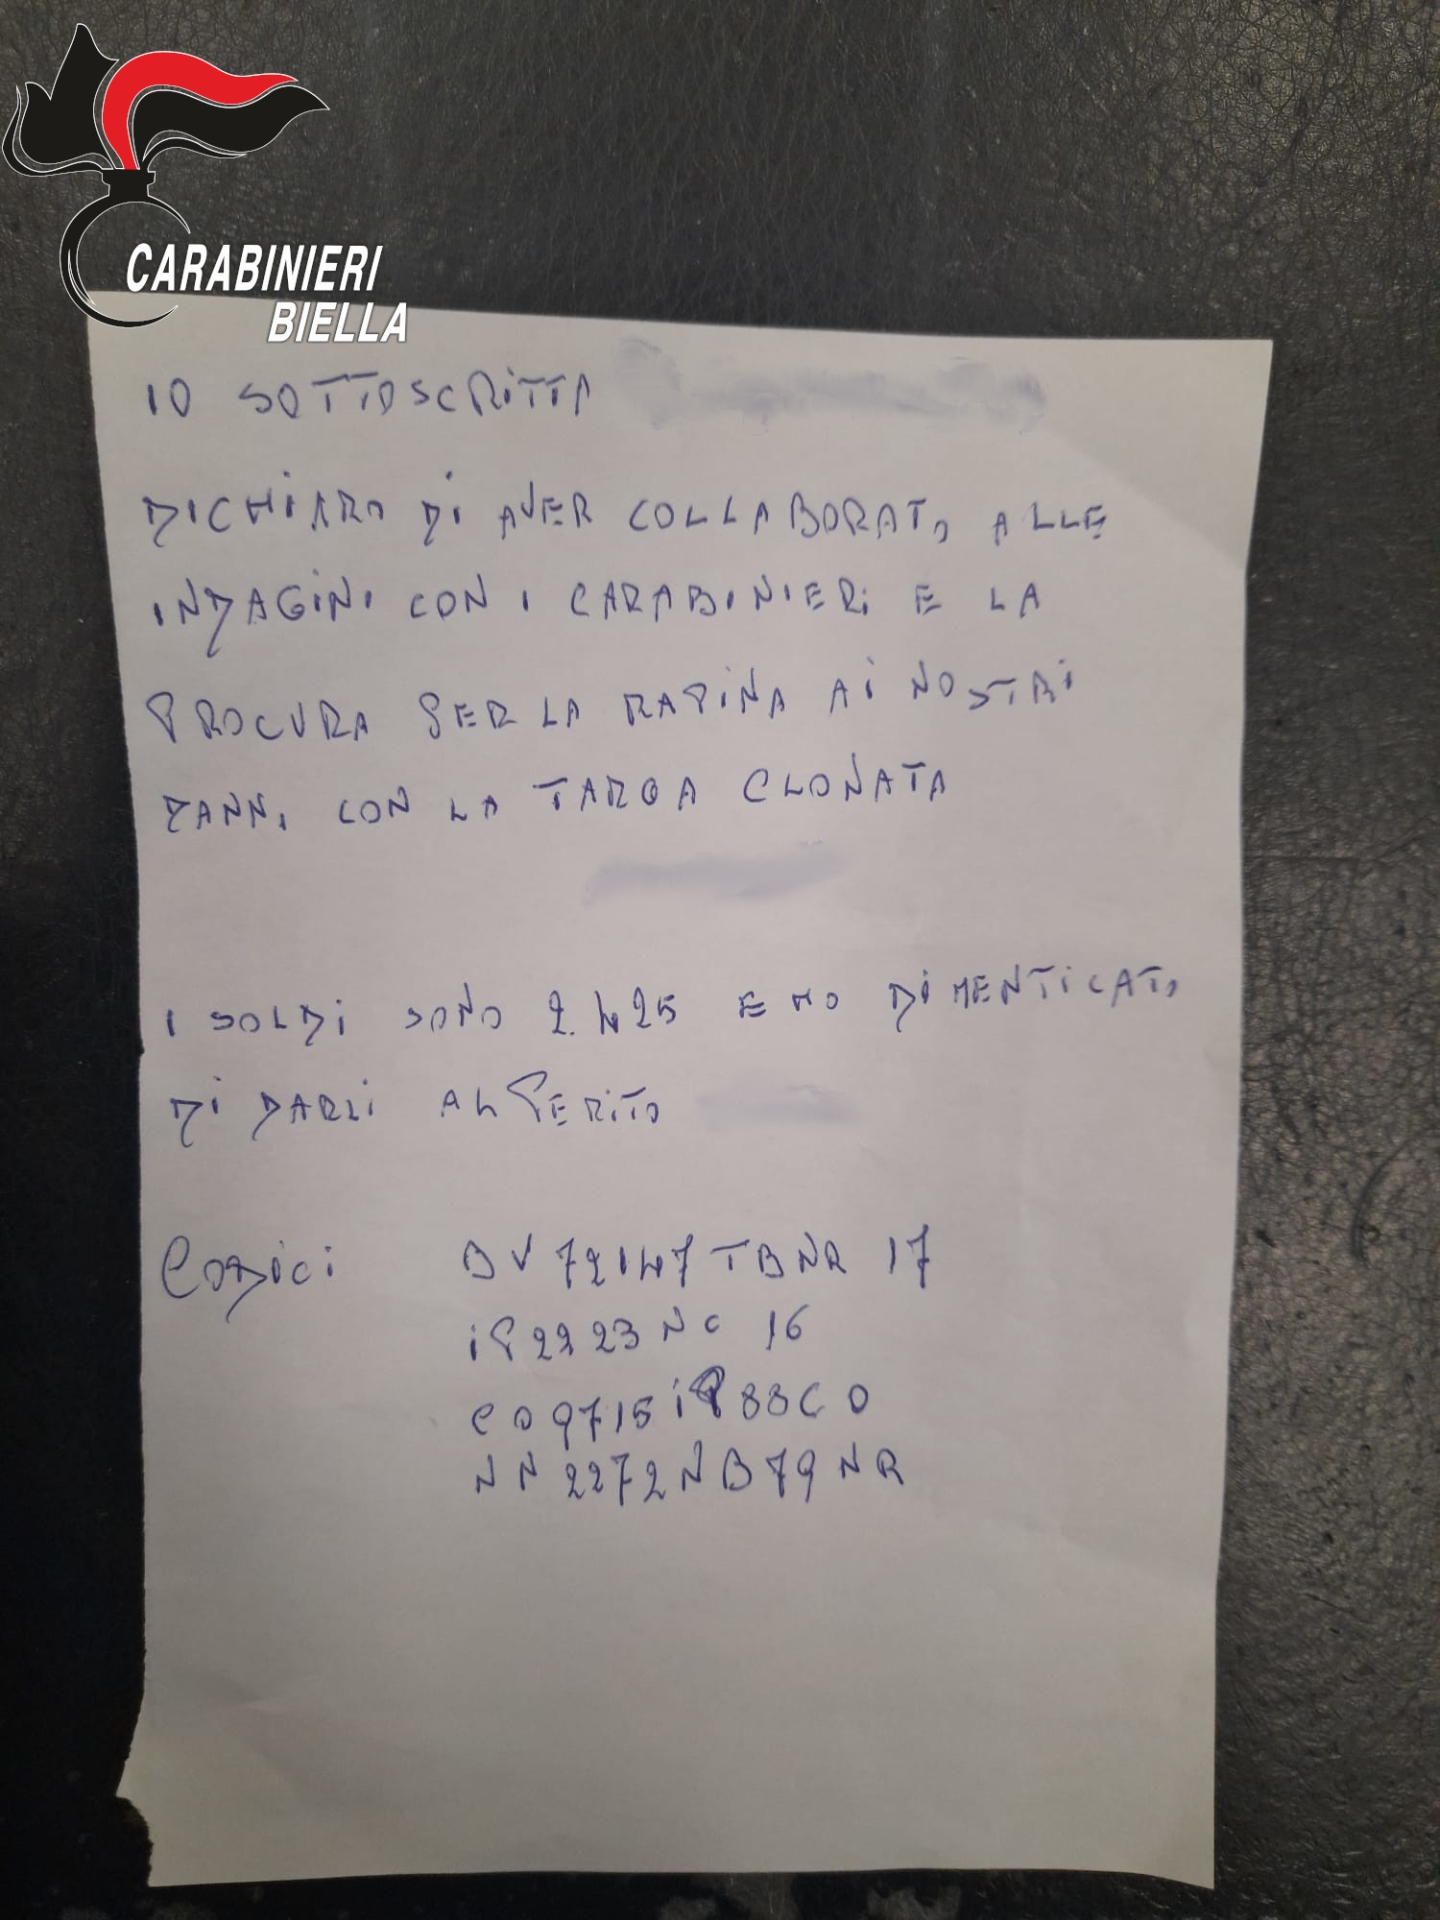 CARABINIERI
BIELLA
IO SOTTOSCRITTA
DICHIARO DI AVER COLLABORATO ALLE
INDAGINI CON I CARABINIERI E LA
PROCURA PER LA RAPINA AI NOSTRI
DANNI CON LA TARGA CLONATA
I SOLDI SONO 2.425 E HO DIMENTICATO
DI DARLI AL PERITO
CODICI BV72147TBNR 17
iP2223NC 16
CO9715iP88CO
NN2272NB79NR